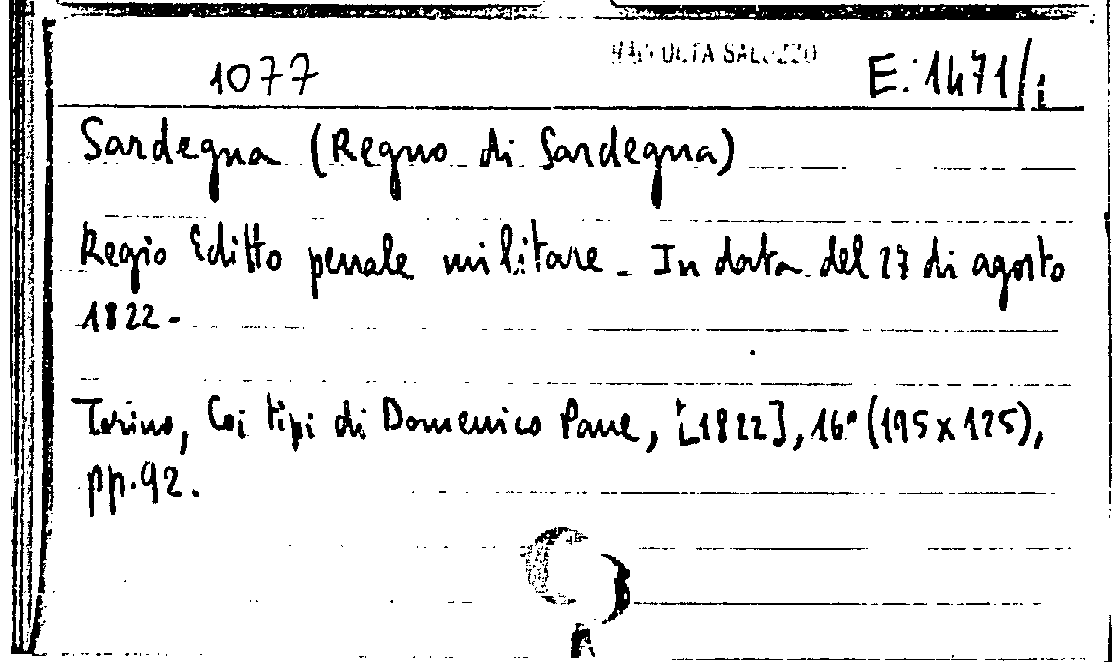 RACCOLTA SALUZZO
1077 E. 1471/i
Sardegna (Regno di Sardegna)
Regio Editto penale militare - In data del 27 di agosto
1822 -
Torino, Coi tipi di Domenico Pane, [1822], 16° (195 x 125),
pp. 92.